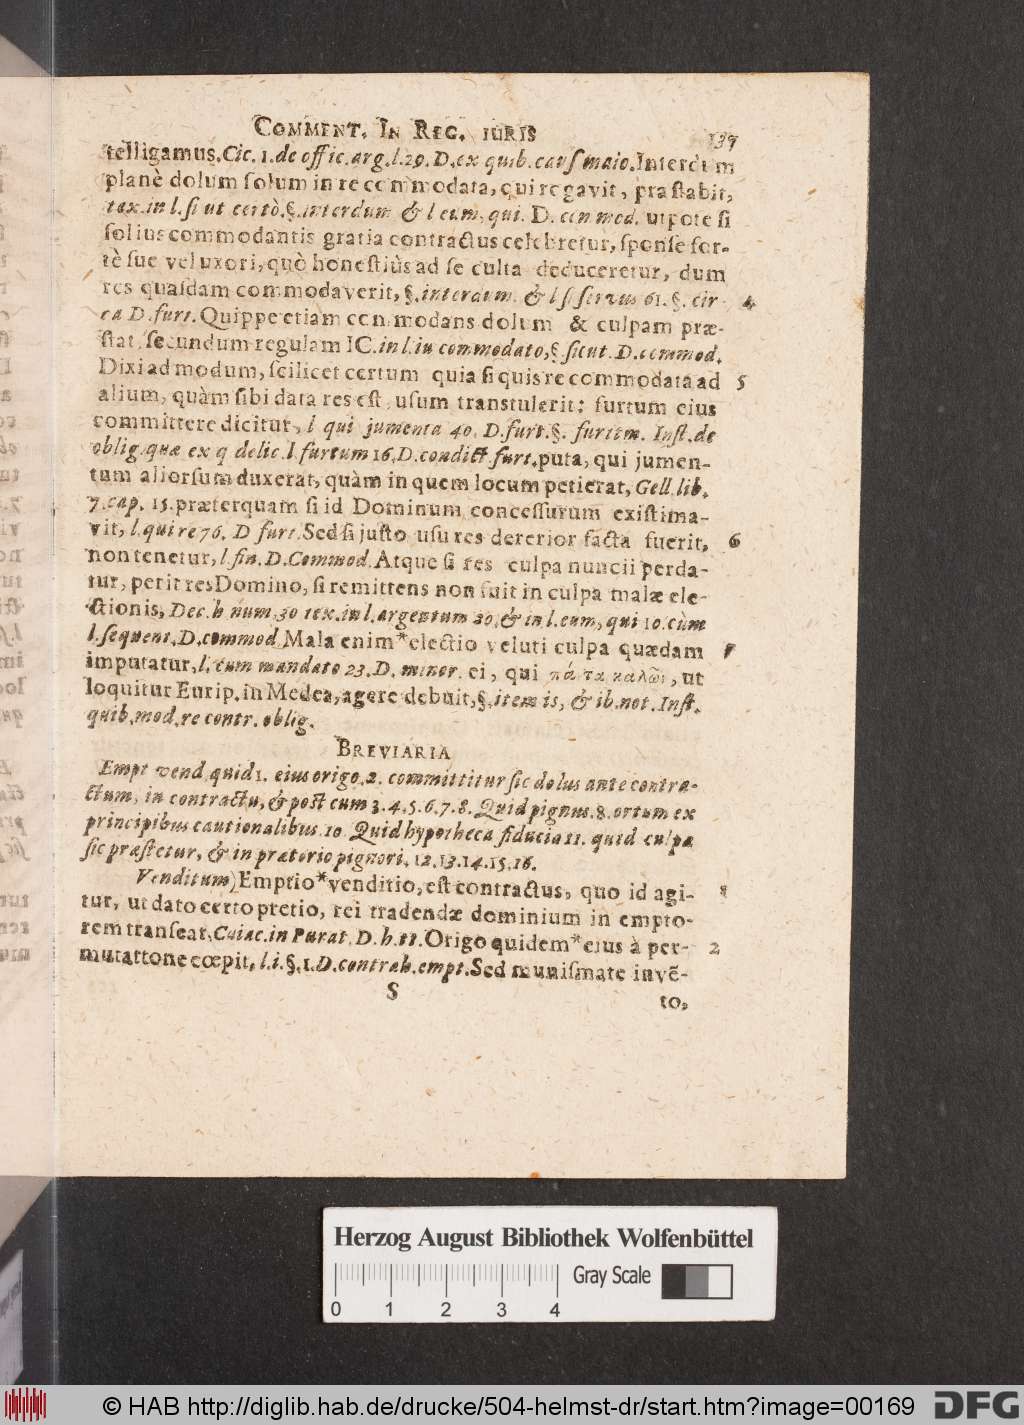 COMMENT. IN REG. IURIS 137
telligamus. Cic. 1. de offic. arg. l. 29. D. ex quib. cauſ maio. Interdum
planè dolum ſolum in re commodata, qui rogavit, præſtabit,
tex. in l. ſi ut certò. §. interdum & l eum, qui. D. commod. utpote ſi
ſolius commodantis gratia contractus celebretur, ſponſe for-
tè ſue vel uxori, quò honeſtiùs ad ſe culta deduceretur, dum
res quaſdam commodaverit, §. interdum. & l ſi ſervus 61. §. cir- 4
ca D. furt. Quippe etiam commodans dolum & culpam præ-
ſtat, ſecundum regulam IC. in l. in commodato, §. ſicut. D. commod.
Dixi ad modum, ſcilicet certum quia ſi quis re commodata ad 5
alium, quàm ſibi data res eſt, uſum transtulerit: furtum eius
committere dicitur, l qui jumenta 40. D. furt. §. furtum. Inſt. de
oblig. quæ ex q delic. l. furtum 16. D. condict furt. puta, qui jumen-
tum aliorſum duxerat, quàm in quem locum petierat, Gell. lib.
7. cap. 15. præterquam ſi id Dominum conceſſurum existima-
vit, l. qui re 76. D furt. Sed ſi juſto uſu res dererior facta fuerit, 6
non tenetur, l. fin. D. Commod. Atque ſi res culpa nuncii perda-
tur, perit res Domino, ſi remittens non fuit in culpa malæ ele-
ctionis, Dec. h num. 30 tex. in l. argentum 20. & in l. eum, qui 10. cum
l. ſequent. D. commod. Mala enim* electio veluti culpa quædam 7
imputatur, l. cum mandato 23. D. minor. ei, qui πάντα καλῶς, ut
loquitur Eurip. in Medea, agere debuit, §. item is, & ib. not. Inſt.
quib. mod. re contr. oblig.
BREVIARIA
Empt vend. quid 1. eius origo. 2. committitur ſic dolus ante contra-
ctum, in contractu, & post cum 3. 4. 5. 6. 7. 8. Quid pignus. 8. ortum ex
principibus cautionalibus. 10. Quid hypotheca fiducia 11. quid culpa
ſic præſtetur, & in prætorio pignori. 12. 13. 14. 15. 16.
Venditum) Emptio* venditio, eſt contractus, quo id agi- 1
tur, ut dato certo pretio, rei tradendæ dominium in empto-
rem transeat, Cuiac. in Parat. D. h. tt. Origo quidem* eius à per- 2
mutattone cœpit, l. i. §. 1. D. contrah. empt. Sed munismate invẽ-
S to,
Herzog August Bibliothek Wolfenbüttel
Gray Scale
0 1 2 3 4
© HAB http://diglib.hab.de/drucke/504-helmst-dr/start.htm?image=00169 DFG